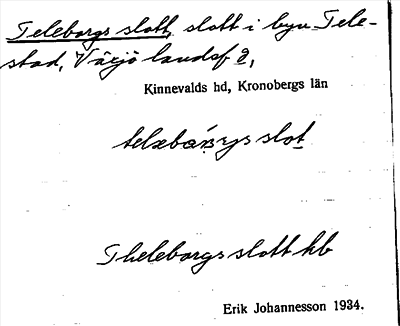 Teleborgs slott, slott i byn Tele-
stad, Växjö landsf 2,
Kinnevalds hd, Kronobergs län
slot
Theleborgs slott hb
Erik Johannesson 1934.